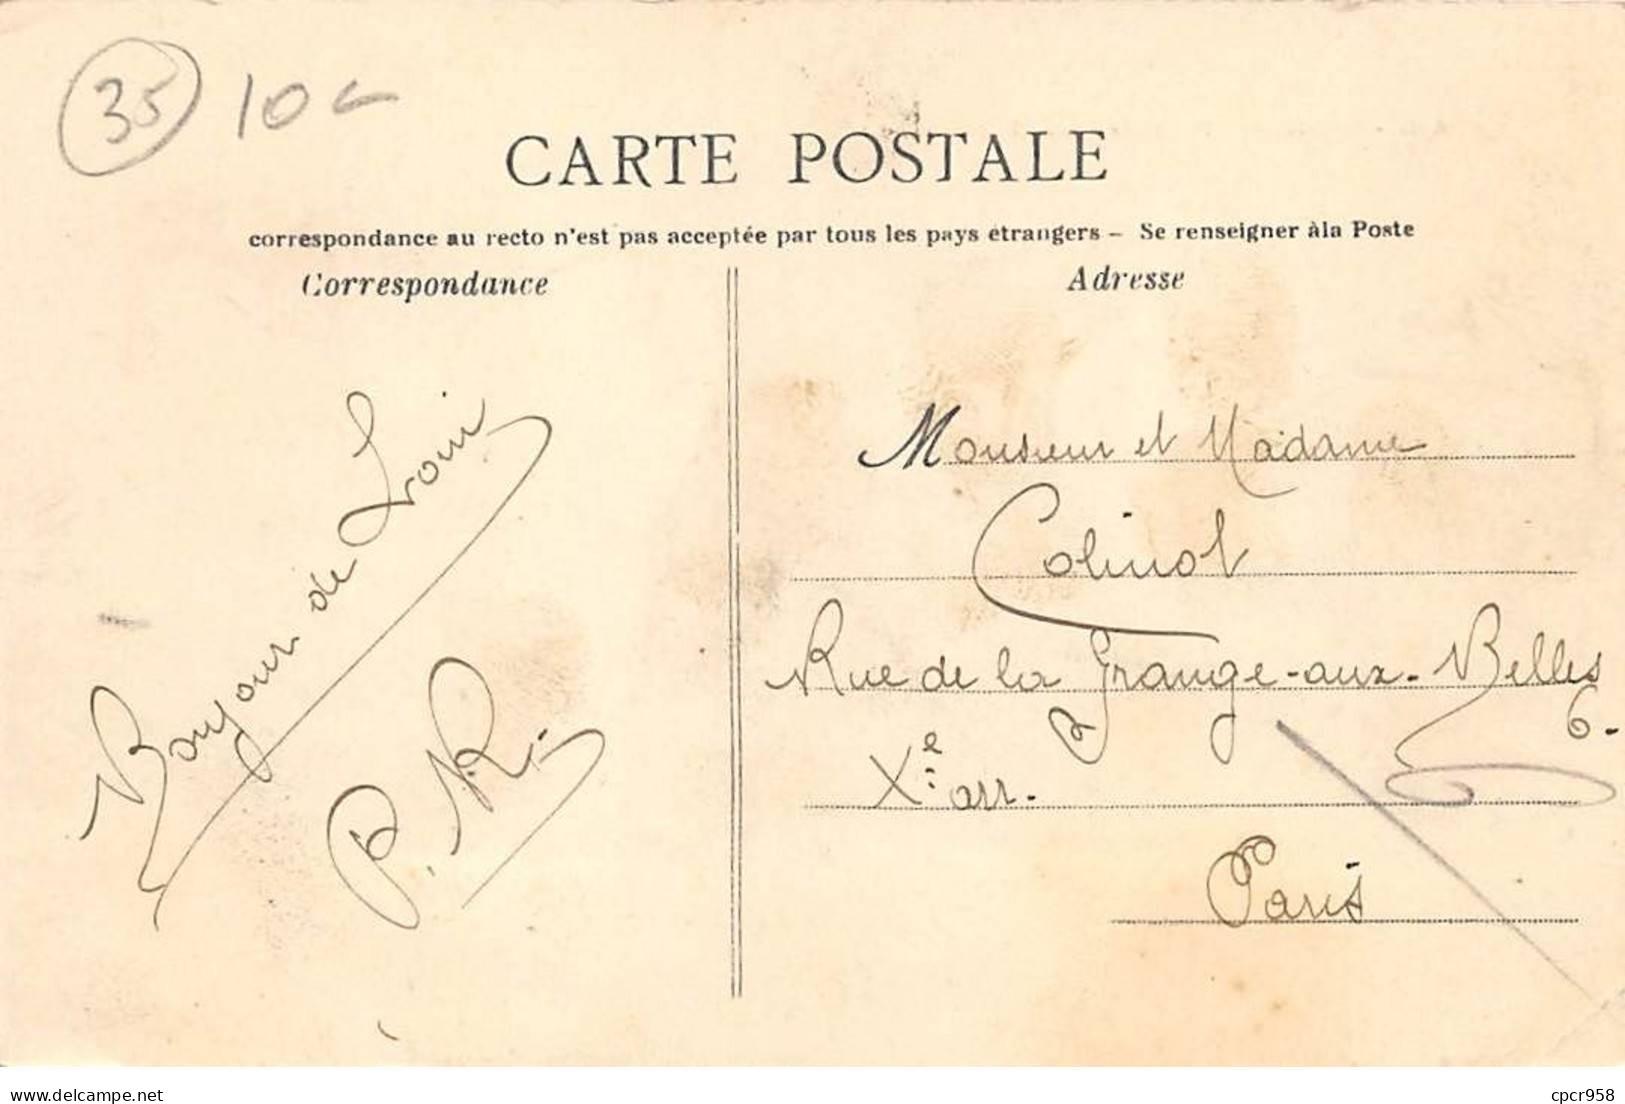 35 10
CARTE POSTALE
correspondance au recto n'est pas acceptée par tous les pays étrangers – Se renseigner àla Poste
Correspondance
Adresse
Bonjour de
P. R.
Monsieur et Madame
Colinot
Rue de la Grange-aux-Belles
6.
Xe arr.
Paris
delcampe.net
cpcr958